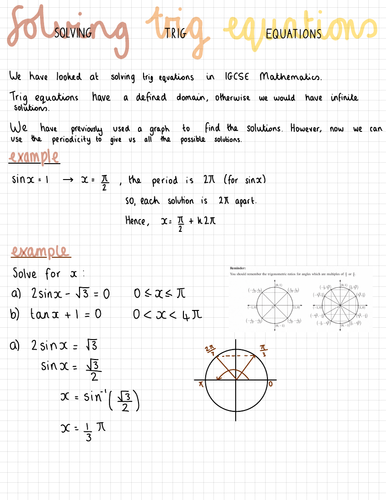 Solving trig equations
SOLVING TRIG EQUATIONS
We have looked at solving trig equations in IGCSE Mathematics.
Trig equations have a defined domain, otherwise we would have infinite
solutions.
We have previously used a graph to find the solutions. However, now we can
use the periodicity to give us all the possible solutions.
example
sinx = 1 → x = π/2 , the period is 2π (for sinx)
so, each solution is 2π apart.
Hence, x = π/2 + k2π
example
Solve for x :
a) 2sinx - √3 = 0 0 ≤ x ≤ π
b) tanx + 1 = 0 0 < x < 4π
Reminder:
You should remember the trigonometric ratios for angles which are multiples of π/6 or π/4
a) 2sinx = √3
sinx = √3/2
x = sin⁻¹(√3/2)
x = 1/3 π
2π/3
π/3
π
0